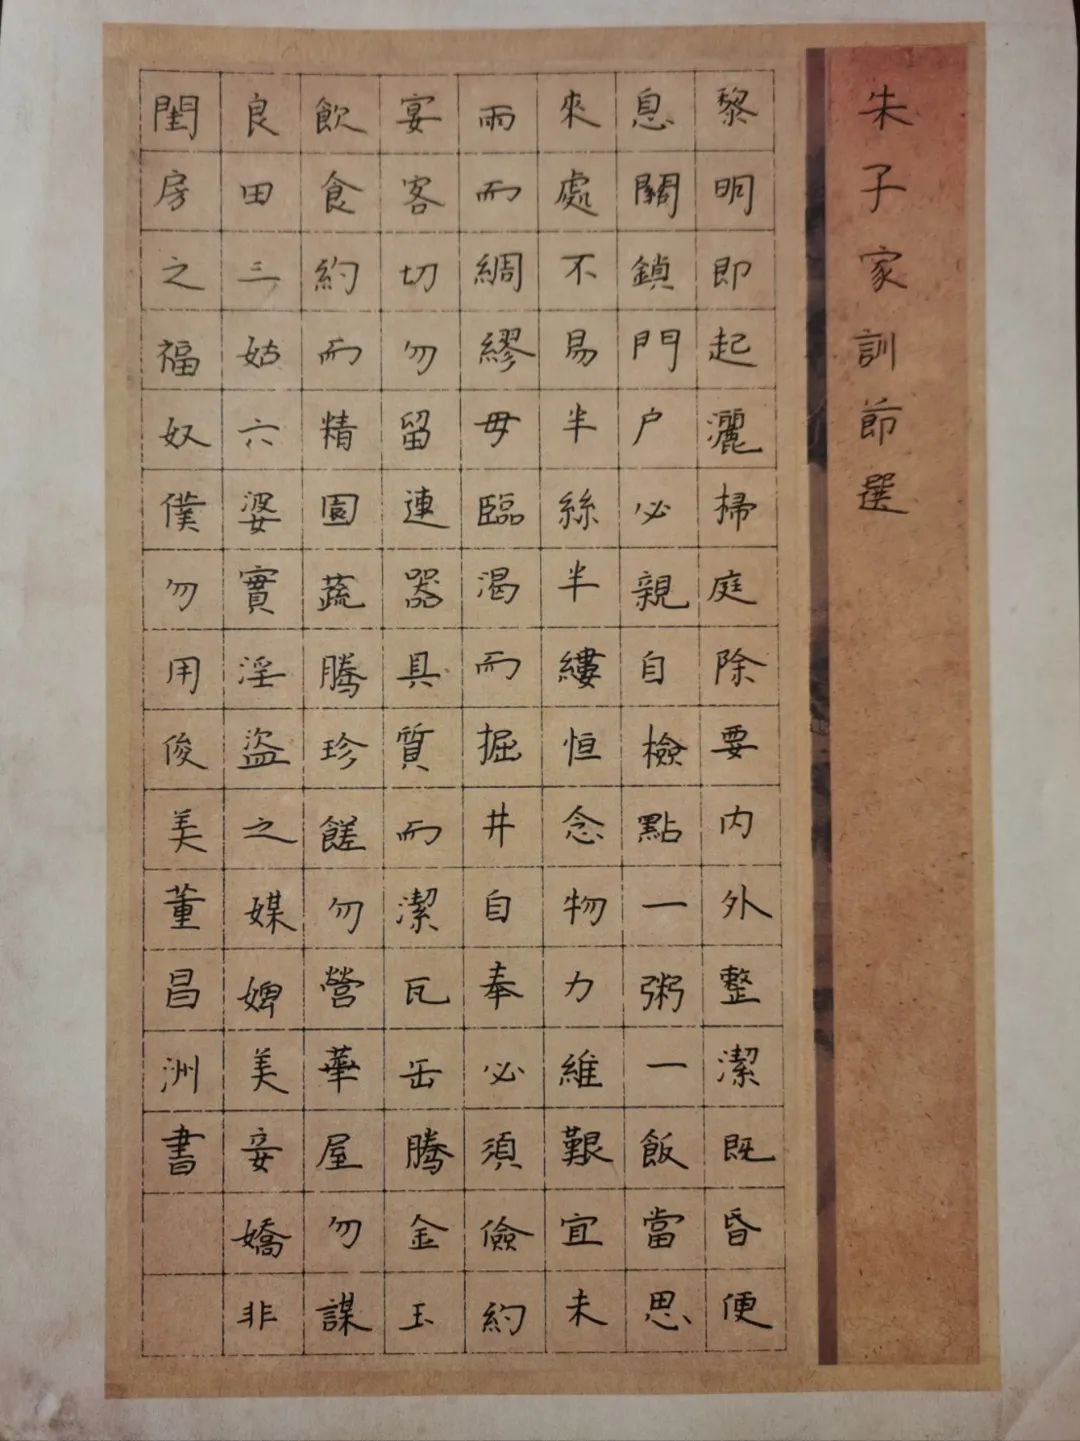 朱子家訓節選
黎明即起灑掃庭除要内外整潔既昏便
息關鎖門户必親自檢點一粥一飯當思
來處不易半絲半縷恒念物力維艱宜未
雨而綢繆毋臨渴而掘井自奉必須儉約
宴客切勿留連器具質而潔瓦缶騰金玉
飲食約而精園蔬騰珍饈勿營華屋勿謀
良田三姑六婆實淫盜之媒婢美妾嬌非
閨房之福奴僕勿用俊美董昌洲書